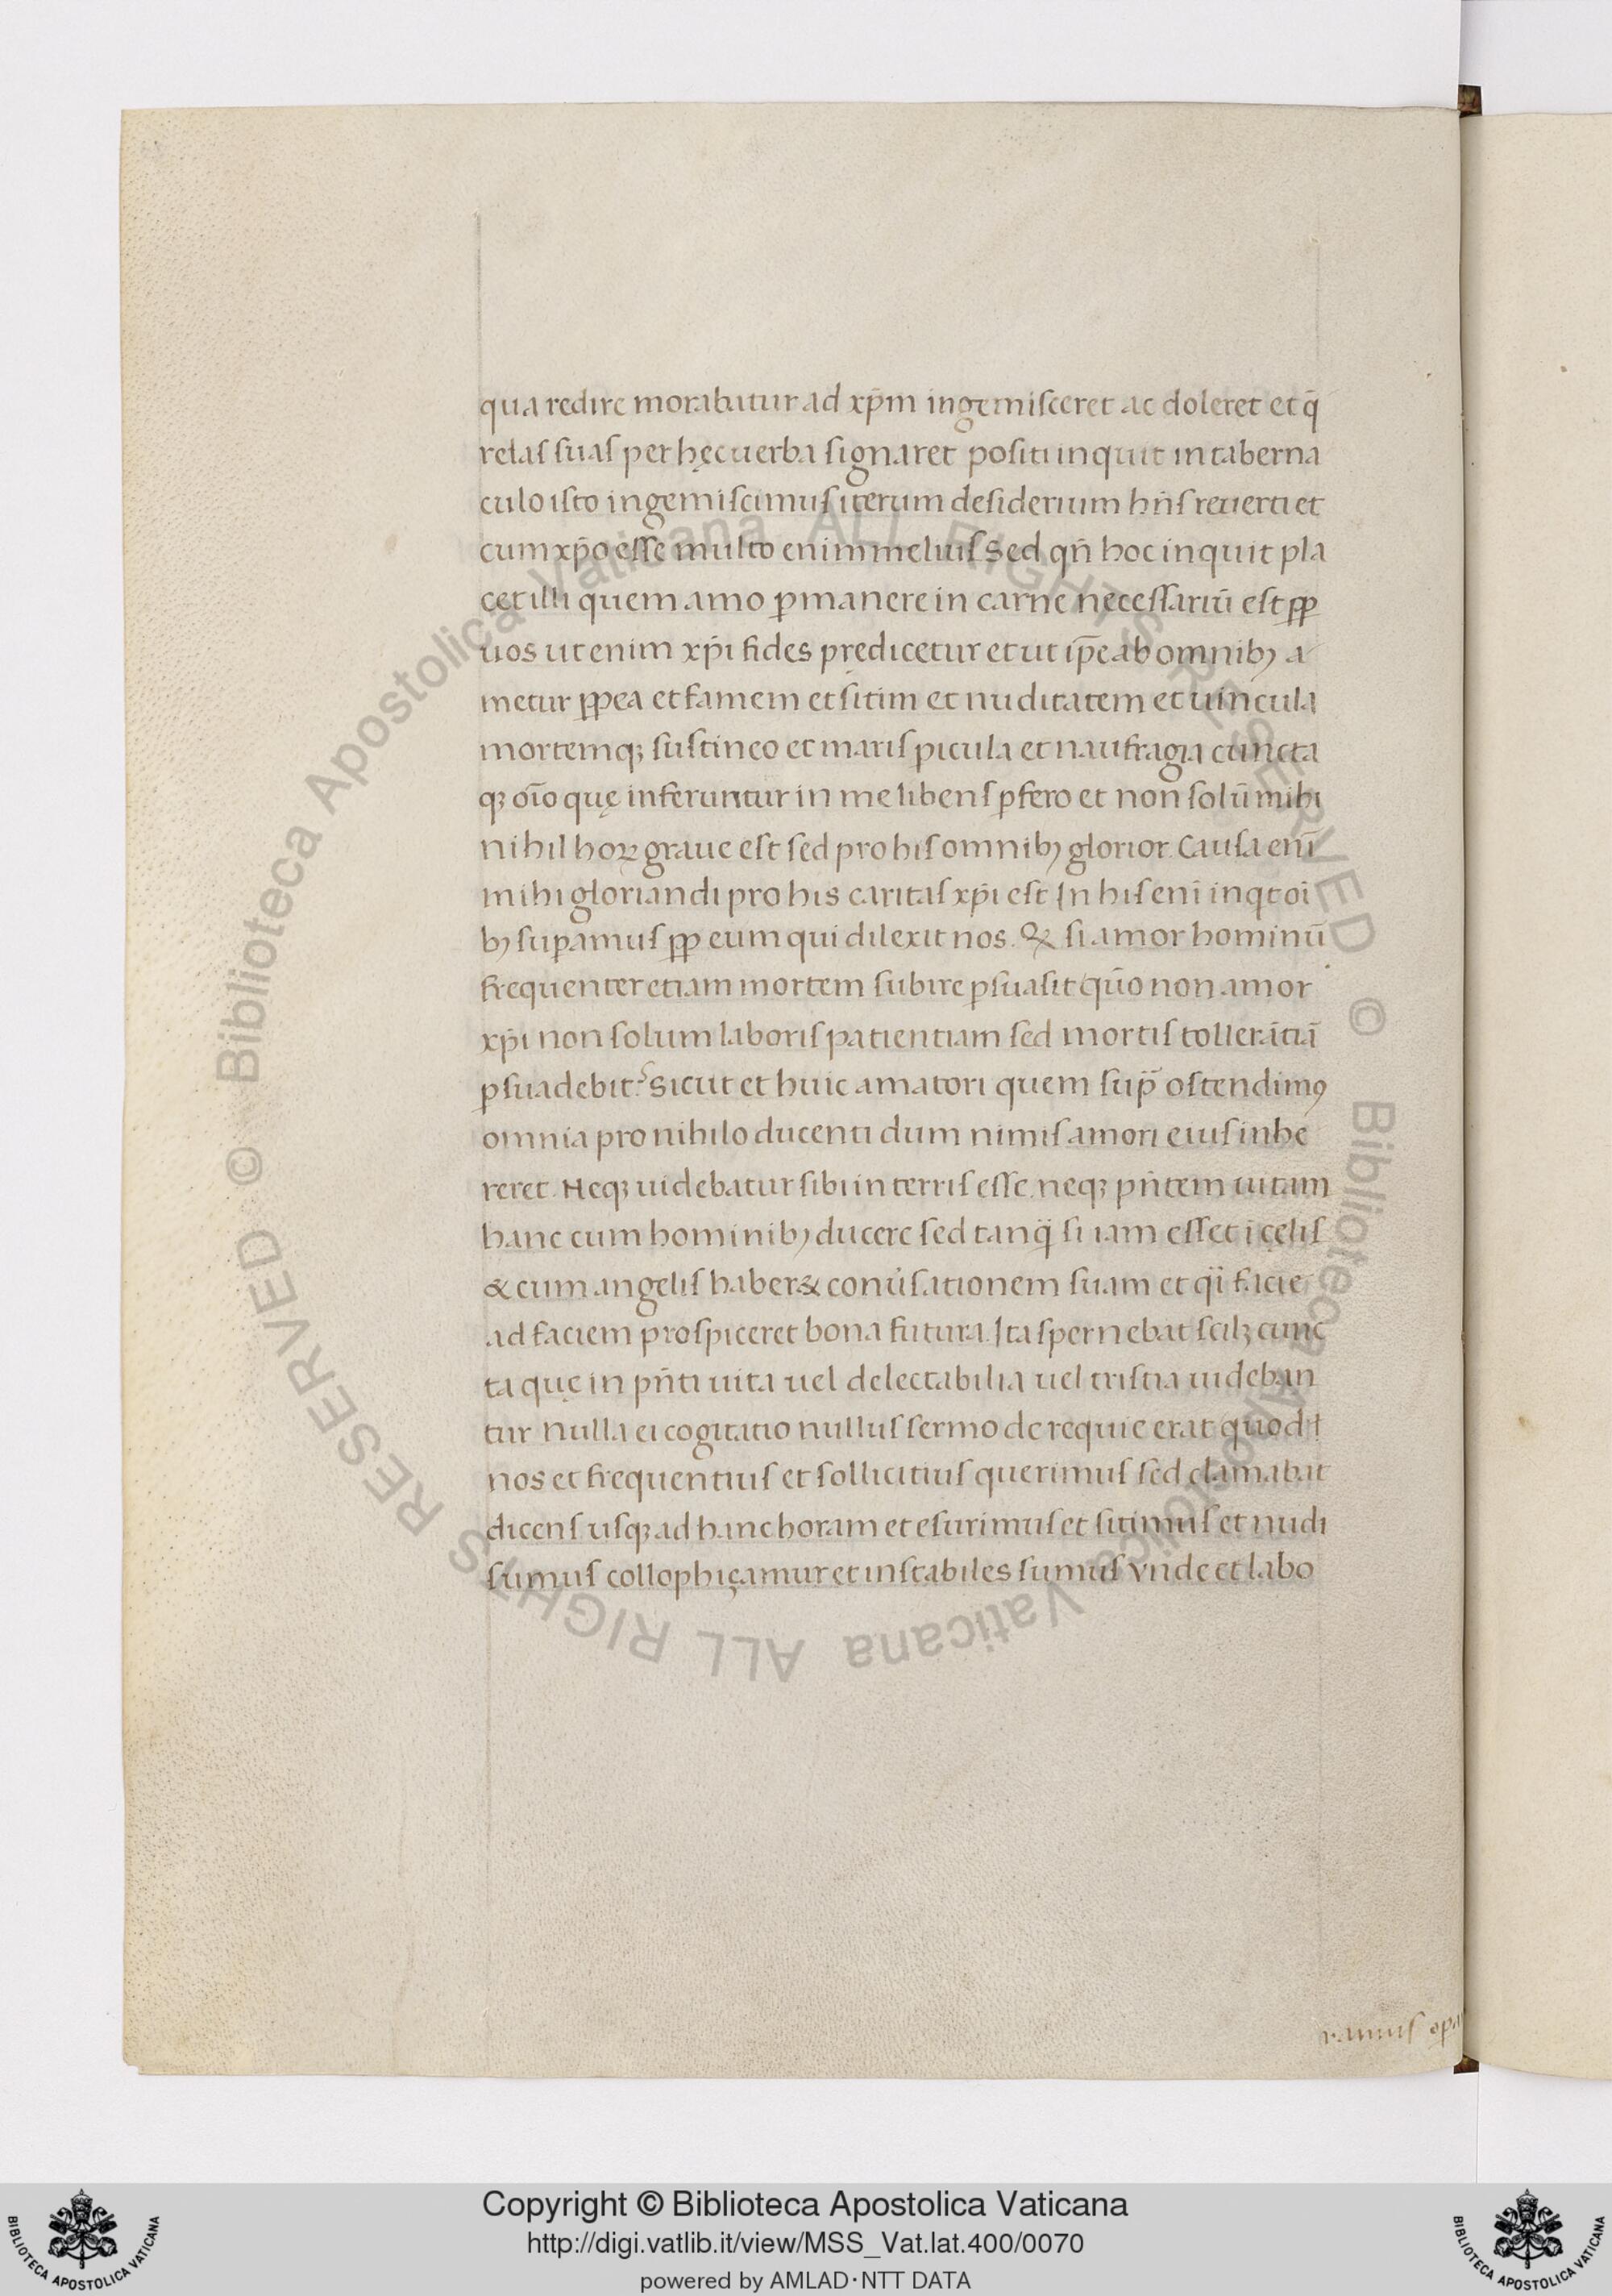 qua redire morabatur ad xp̄m ingemisceret ac doleret et q̄
relas suas per hęc uerba signaret positi inquit in taberna
culo isto ingemiscimus iterum desiderium hn̄s reuerti et
cum xp̄o esse multo enim melius Sed qn̄ hoc inquit pla
cet illi quem amo ꝑmanere in carne necessariū est ꝓꝑ
uos ut enim xp̄i fides prędicetur et ut ip̄e ab omnibꝫ a
metur ꝓꝑea et famem et sitim et nuditatem et uincula
mortemqꝫ sustineo et maris picula et naufragia cuncta
qꝫ oīo quę inferuntur in me libens ꝑfero et non solū mihi
nihil hoꝝ graue est sed pro his omnibꝫ glorior. Causa enī
mihi gloriandi pro his caritas xp̄i est In his enī inqt oī
bꝫ suꝑamus ꝓꝑ eum qui dilexit nos. Q& si amor hominū
frequenter etiam mortem subire ꝑsuasit quō non amor
xp̄i non solum laboris patientiam sed mortis tollerātiā
ꝑsuadebit? Sicut et huic amatori quem sup̄ ostendimꝰ
omnia pro nihilo ducenti dum nimis amori eius inhe
reret. Neqꝫ uidebatur sibi in terris esse. neqꝫ pn̄tem uitam
hanc cum hominibꝫ ducere sed tanq̄ si iam esset ī cęlis
& cum angelis haber& conu̓sationem suam et q̄i facie
ad faciem prospiceret bona futura. Ita spernebat scilꝫ cunc
ta quę in pn̄ti uita uel delectabilia uel tristia uideban
tur Nulla ei cogitatio nullus sermo de requie erat quod ī
nos et frequentius et sollicitius querimus sed clamabat
dicens usqꝫ ad hanc horam et esurimus et sitimus et nudi
sumus collophiçamur et instabiles sumus Vnde et labo
ramus
Copyright © Biblioteca Apostolica Vaticana
http://digi.vatlib.it/view/MSS_Vat.lat.400/0070
powered by AMLAD·NTT DATA
BIBLIOTECA APOSTOLICA VATICANA
BIBLIOTECA APOSTOLICA VATICANA
© Biblioteca Apostolica Vaticana ALL RIGHTS RESERVED
© Biblioteca Apostolica Vaticana ALL RIGHTS RESERVED